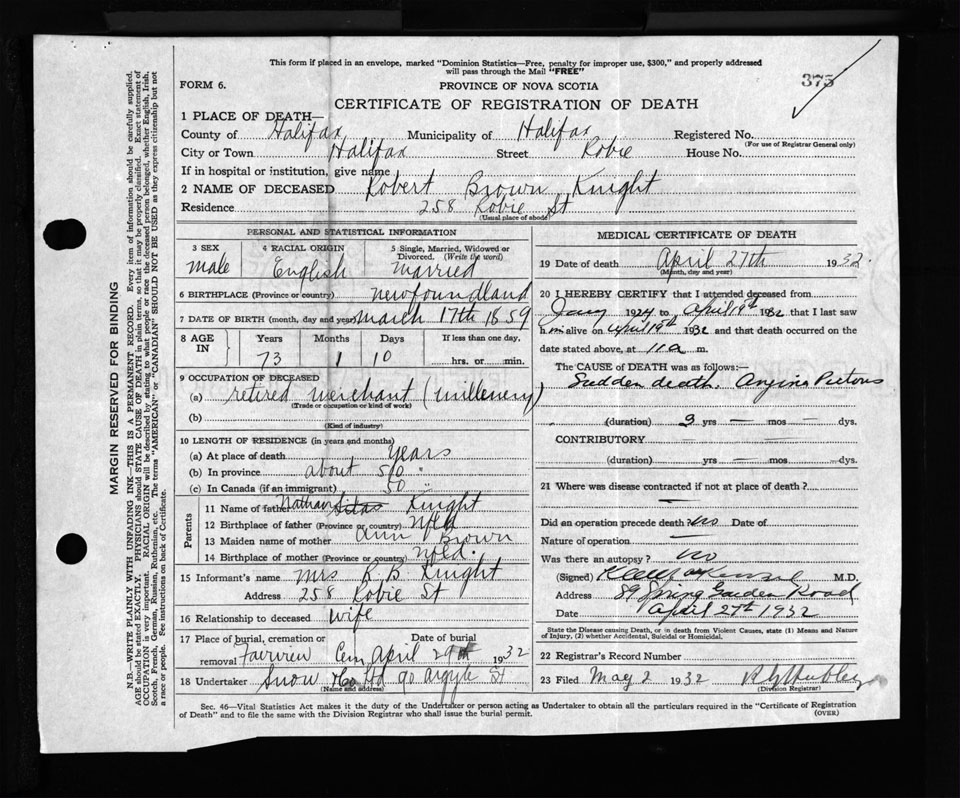 This form if placed in an envelope, marked "Dominion Statistics—Free, penalty for improper use, $300," and properly addressed
will pass through the Mail "FREE"
375
FORM 6.
PROVINCE OF NOVA SCOTIA
CERTIFICATE OF REGISTRATION OF DEATH
1 PLACE OF DEATH—
County of Halifax Municipality of Halifax Registered No.
(For use of Registrar General only)
City or Town Halifax Street Robie House No.
If in hospital or institution, give name
2 NAME OF DECEASED Robert Brown Knight
Residence 258 Robie St
(Usual place of abode)
PERSONAL AND STATISTICAL INFORMATION
3 SEX
male
4 RACIAL ORIGIN
English
5 Single, Married, Widowed or
Divorced. (Write the word)
married
6 BIRTHPLACE (Province or country) newfoundland
7 DATE OF BIRTH (month, day and year) march 17th 1859
8 AGE
IN
Years Months Days If less than one day,
73 1 10 hrs. or min.
9 OCCUPATION OF DECEASED
(a) retired merchant (millenery)
(Trade or occupation or kind of work)
(b)
(Kind of industry)
10 LENGTH OF RESIDENCE (in years and months)
(a) At place of death years
(b) In province about 50 "
(c) In Canada (if an immigrant) 50 "
Parents
11 Name of father Nathan Silas Knight
12 Birthplace of father (Province or country) Nfld
13 Maiden name of mother Ann Brown
14 Birthplace of mother (Province or country) Nfld.
15 Informant's name Mrs R B Knight
Address 258 Robie St
16 Relationship to deceased wife
17 Place of burial, cremation or Date of burial
removal Fairview Cem April 29th 1932
18 Undertaker Snow & Co Ltd 90 Argyle St
(Name and address)
MEDICAL CERTIFICATE OF DEATH
19 Date of death April 27th 1932.
(Month, day and year)
20 I HEREBY CERTIFY that I attended deceased from
Jany 1924 to April 19th 1932 that I last saw
him alive on April 19th 1932 and that death occurred on the
date stated above, at 11 a m.
The CAUSE OF DEATH was as follows:—
Sudden death. Angina Pectoris
(duration) 3 yrs — mos — dys.
CONTRIBUTORY
(duration) yrs — mos — dys.
21 Where was disease contracted if not at place of death?
Did an operation precede death? no Date of
Nature of operation
Was there an autopsy? no
(Signed) M.D.
Address 89 Spring Garden Road
Date April 27th 1932
State the Disease causing Death, or in death from Violent Causes, state (1) Means and Nature
of Injury, (2) whether Accidental, Suicidal or Homicidal.
22 Registrar's Record Number
23 Filed May 2 1932
(Division Registrar)
Sec. 46—Vital Statistics Act makes it the duty of the Undertaker or person acting as Undertaker to obtain all the particulars required in the "Certificate of Registration
of Death" and to file the same with the Division Registrar who shall issue the burial permit.
(OVER)
MARGIN RESERVED FOR BINDING
N.B.—WRITE PLAINLY WITH UNFADING INK—THIS IS A PERMANENT RECORD. Every item of information should be carefully supplied.
AGE should be stated EXACTLY. PHYSICIANS should STATE CAUSE OF DEATH in plain terms, so that it may be properly classified. Exact statement of
OCCUPATION is very important. RACIAL ORIGIN will be described by stating to what people or race the deceased person belonged, whether English, Irish,
Scotch, French, German, Russian, Ruthenian, etc. The terms "AMERICAN" or "CANADIAN" SHOULD NOT BE USED as they express citizenship but not
a race or people. See instructions on back of Certificate.